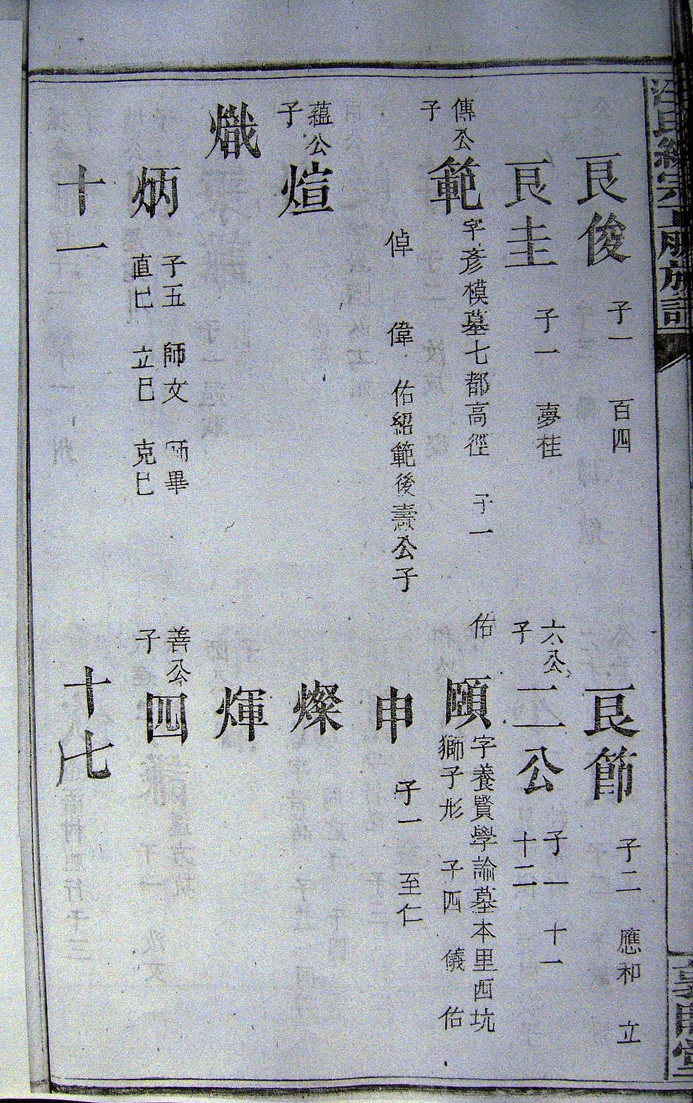 良俊 子一 百四 良節 子二 應和 立
良圭 子一 夢桂 六公子 二公 子一 十一 十二
傳公子 範 字彥模墓七都高徑 子一 佑 頤 字養賢學論墓本里西坑獅子形 子四 儀 佑
倬 偉 佑紹範後 壽公子 申 子一 至仁
蘊公子 煊 燦
熾 煇
炳 子五 師文 師畢 直巳 立巳 克巳 善公子 四
十一 十七